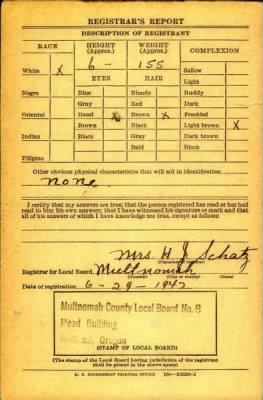 REGISTRAR'S REPORT
DESCRIPTION OF REGISTRANT
RACE HEIGHT (Approx.) WEIGHT (Approx.) COMPLEXION
White X 6 - 155 Sallow
EYES HAIR Light
Negro Blue Blonde Ruddy
Gray Red Dark
Oriental Hazel X Brown X Freckled
Brown Black Light brown X
Indian Black Gray Dark brown
Bald Black
Filipino
Other obvious physical characteristics that will aid in identification
none
I certify that my answers are true; that the person registered has read or has had
read to him his own answers; that I have witnessed his signature or mark and that
all of his answers of which I have knowledge are true, except as follows:
Mrs. H J Schatz
Registrar for Local Board Multnomah
(Number) (City or county) (State)
Date of registration 6-29-1942
Multnomah County Local Board No. 8
Mead Building
Portland, Oregon
(STAMP OF LOCAL BOARD)
(The stamp of the Local Board having jurisdiction of the registrant
shall be placed in the above space.)
U. S. GOVERNMENT PRINTING OFFICE